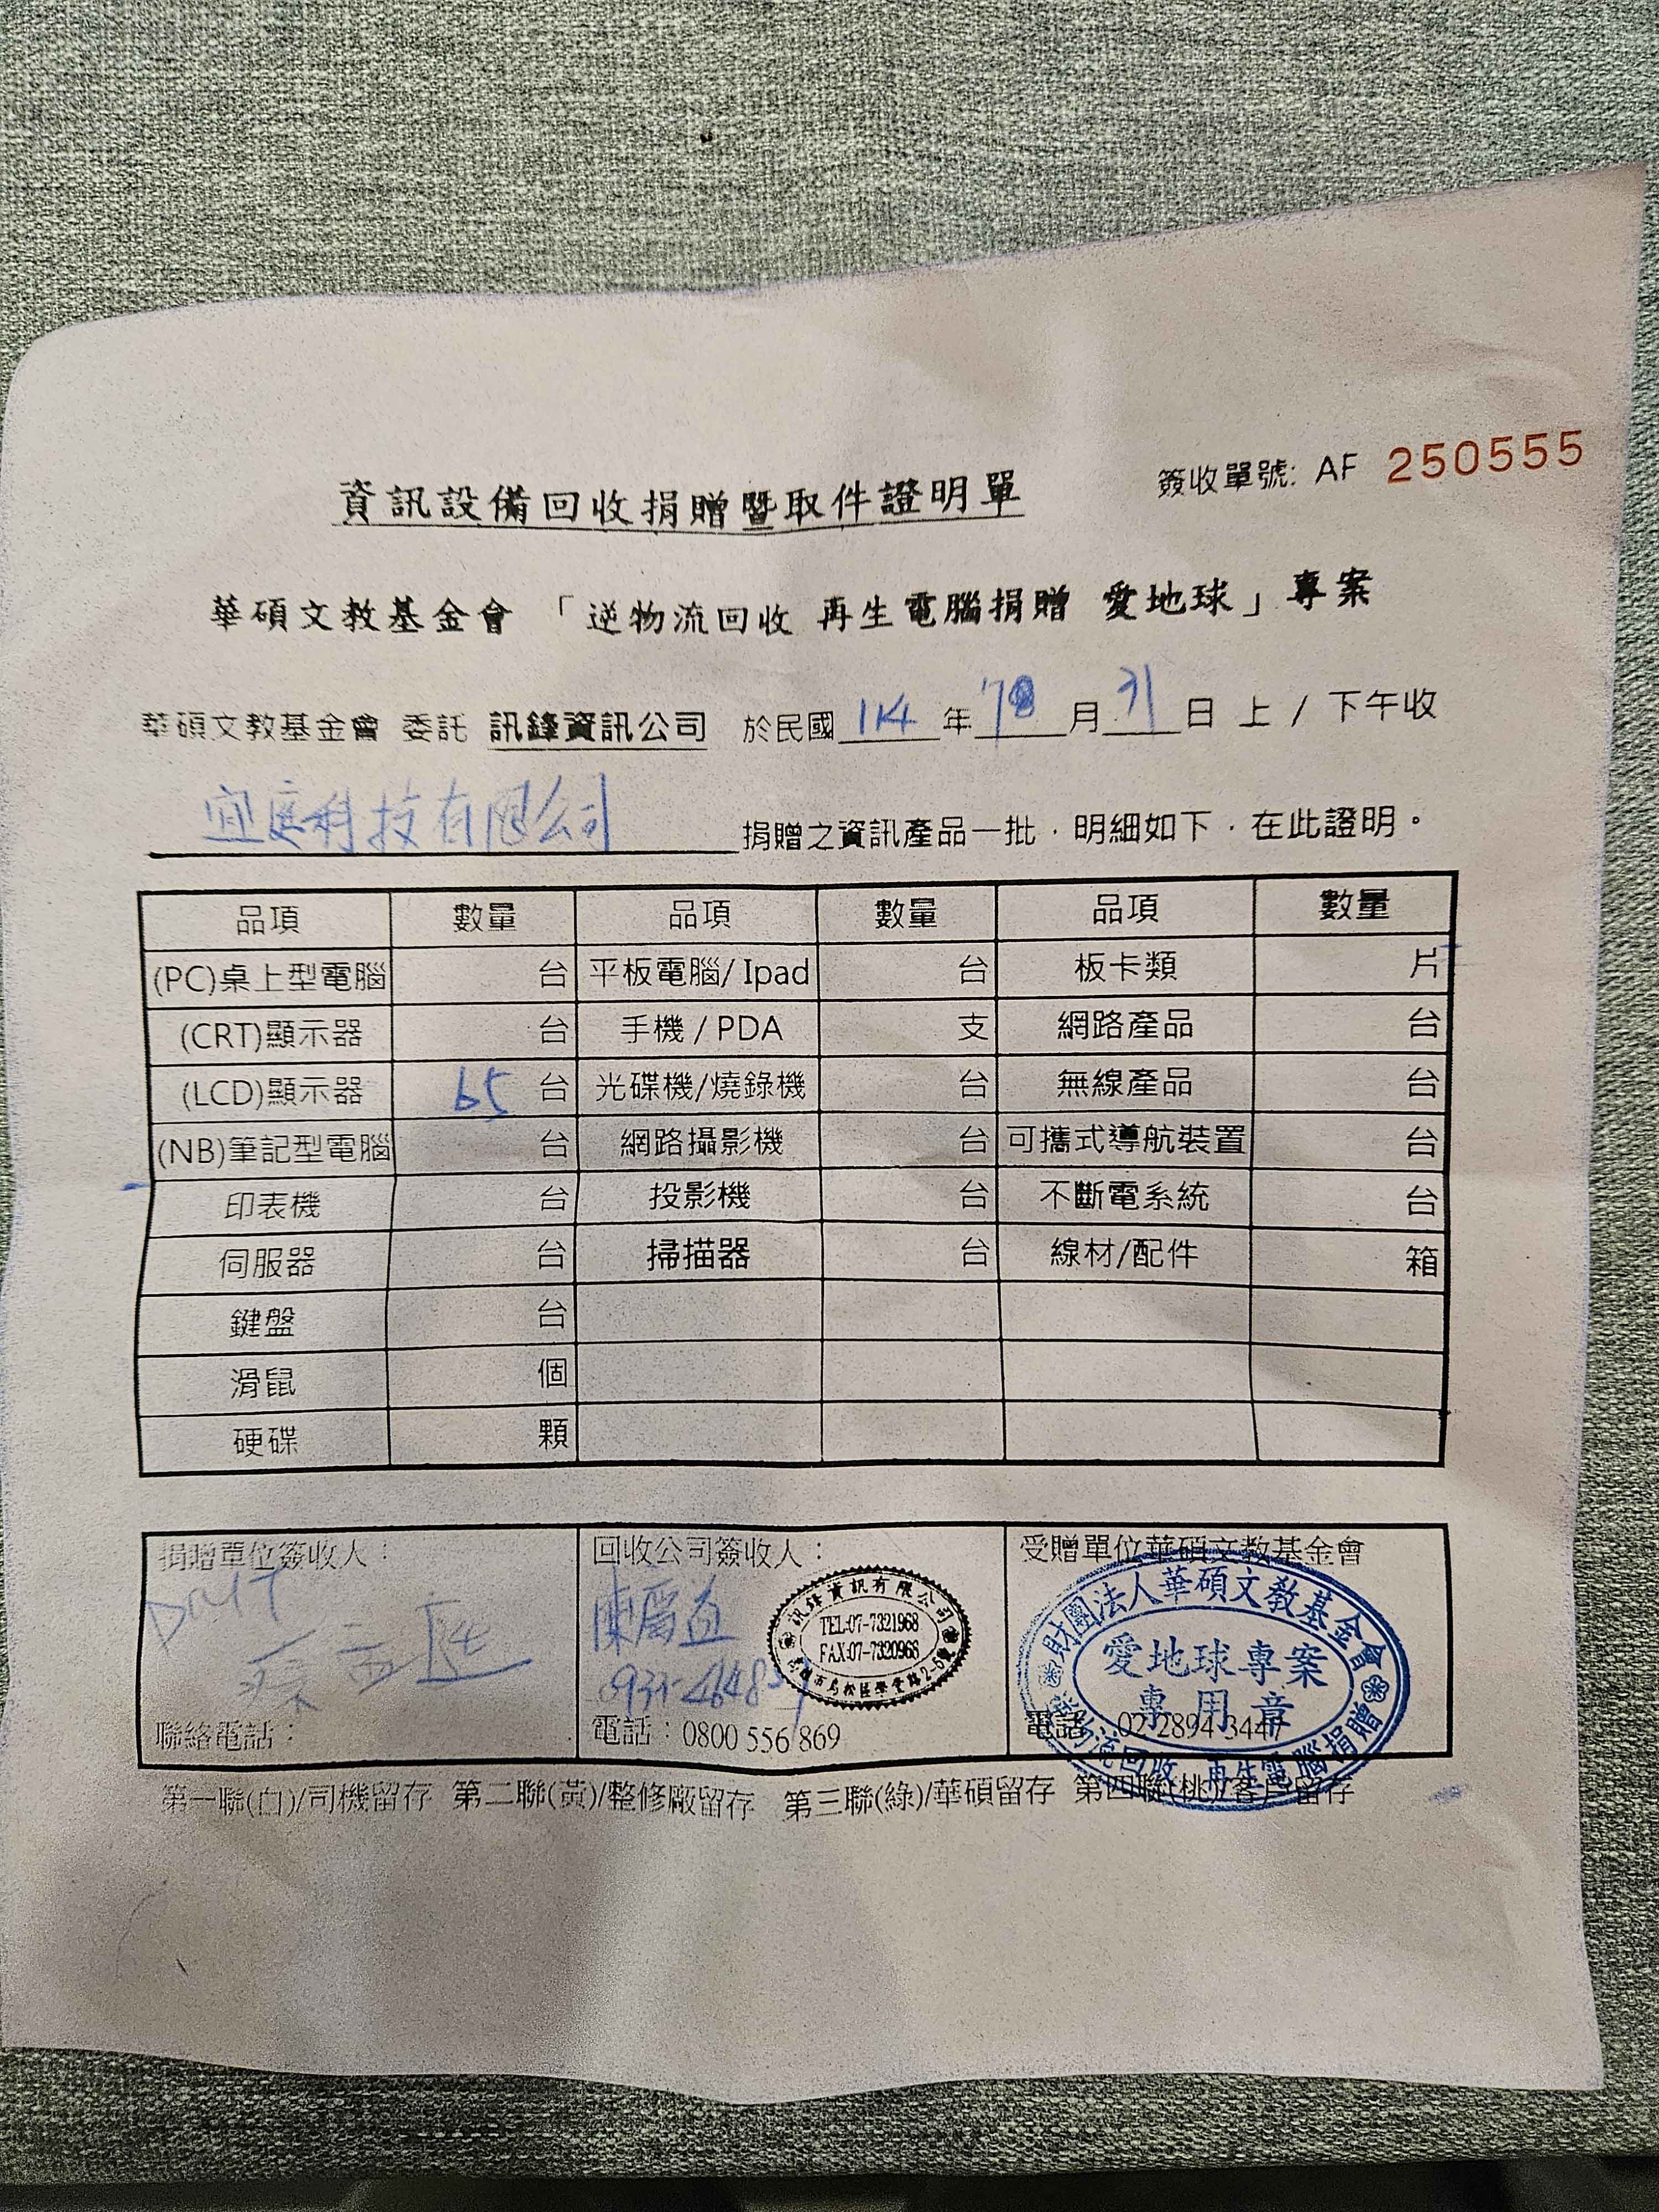 簽收單號: AF 250555
資訊設備回收捐贈暨取件證明單
華碩文教基金會 「逆物流回收 再生電腦捐贈 愛地球」專案
華碩文教基金會 委託 訊鋒資訊公司 於民國 114 年 月 31 日 上 / 下午收
科技有限公司 捐贈之資訊產品一批，明細如下，在此證明。
品項 數量 品項 數量 品項 數量
(PC)桌上型電腦 台 平板電腦/ Ipad 台 板卡類 片
(CRT)顯示器 台 手機 / PDA 支 網路產品 台
(LCD)顯示器 65 台 光碟機/燒錄機 台 無線產品 台
(NB)筆記型電腦 台 網路攝影機 台 可攜式導航裝置 台
印表機 台 投影機 台 不斷電系統 台
伺服器 台 掃描器 台 線材/配件 箱
鍵盤 台
滑鼠 個
硬碟 顆
捐贈單位簽收人：
聯絡電話：
回收公司簽收人：
訊鋒資訊有限公司
TEL:07-7321968
FAX:07-7320968
電話：0800 556 869
受贈單位華碩文教基金會
財團法人華碩文教基金會
愛地球專案
專用章
逆物流回收 再生電腦捐贈
電話 02 2894 3447
第一聯(白)/司機留存 第二聯(黃)/整修廠留存 第三聯(綠)/華碩留存 第四聯(桃)/客戶留存